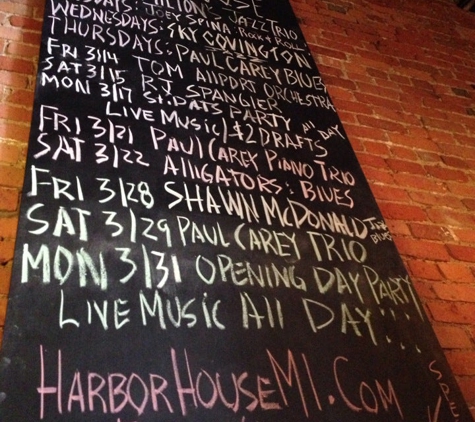 JAZZ TRIO
WEDNESDAYS: JOEY SPINA ROCK & ROLL
SKY COVINGTON
THURSDAYS: PAUL CAREY BLUES
FRI 3/14 TOM AllPORT ORCHESTRA
SAT 3/15 R.J. SPANGLER
MON 3/17 ST. PATS PARTY All DAY
LIVE MUSIC/$2 DRAFTS
FRI 3/21 PAUL CAREY PIANO TRIO
SAT 3/22 AllIGATORS: BLUES
FRI 3/28 SHAWN MCDONALD JAZZ BLUES
SAT 3/29 PAUL CAREY TRIO
MON 3/31 OPENING DAY PARTY
LIVE MUSIC All DAY!!!
HARBORHOUSEMI.COM